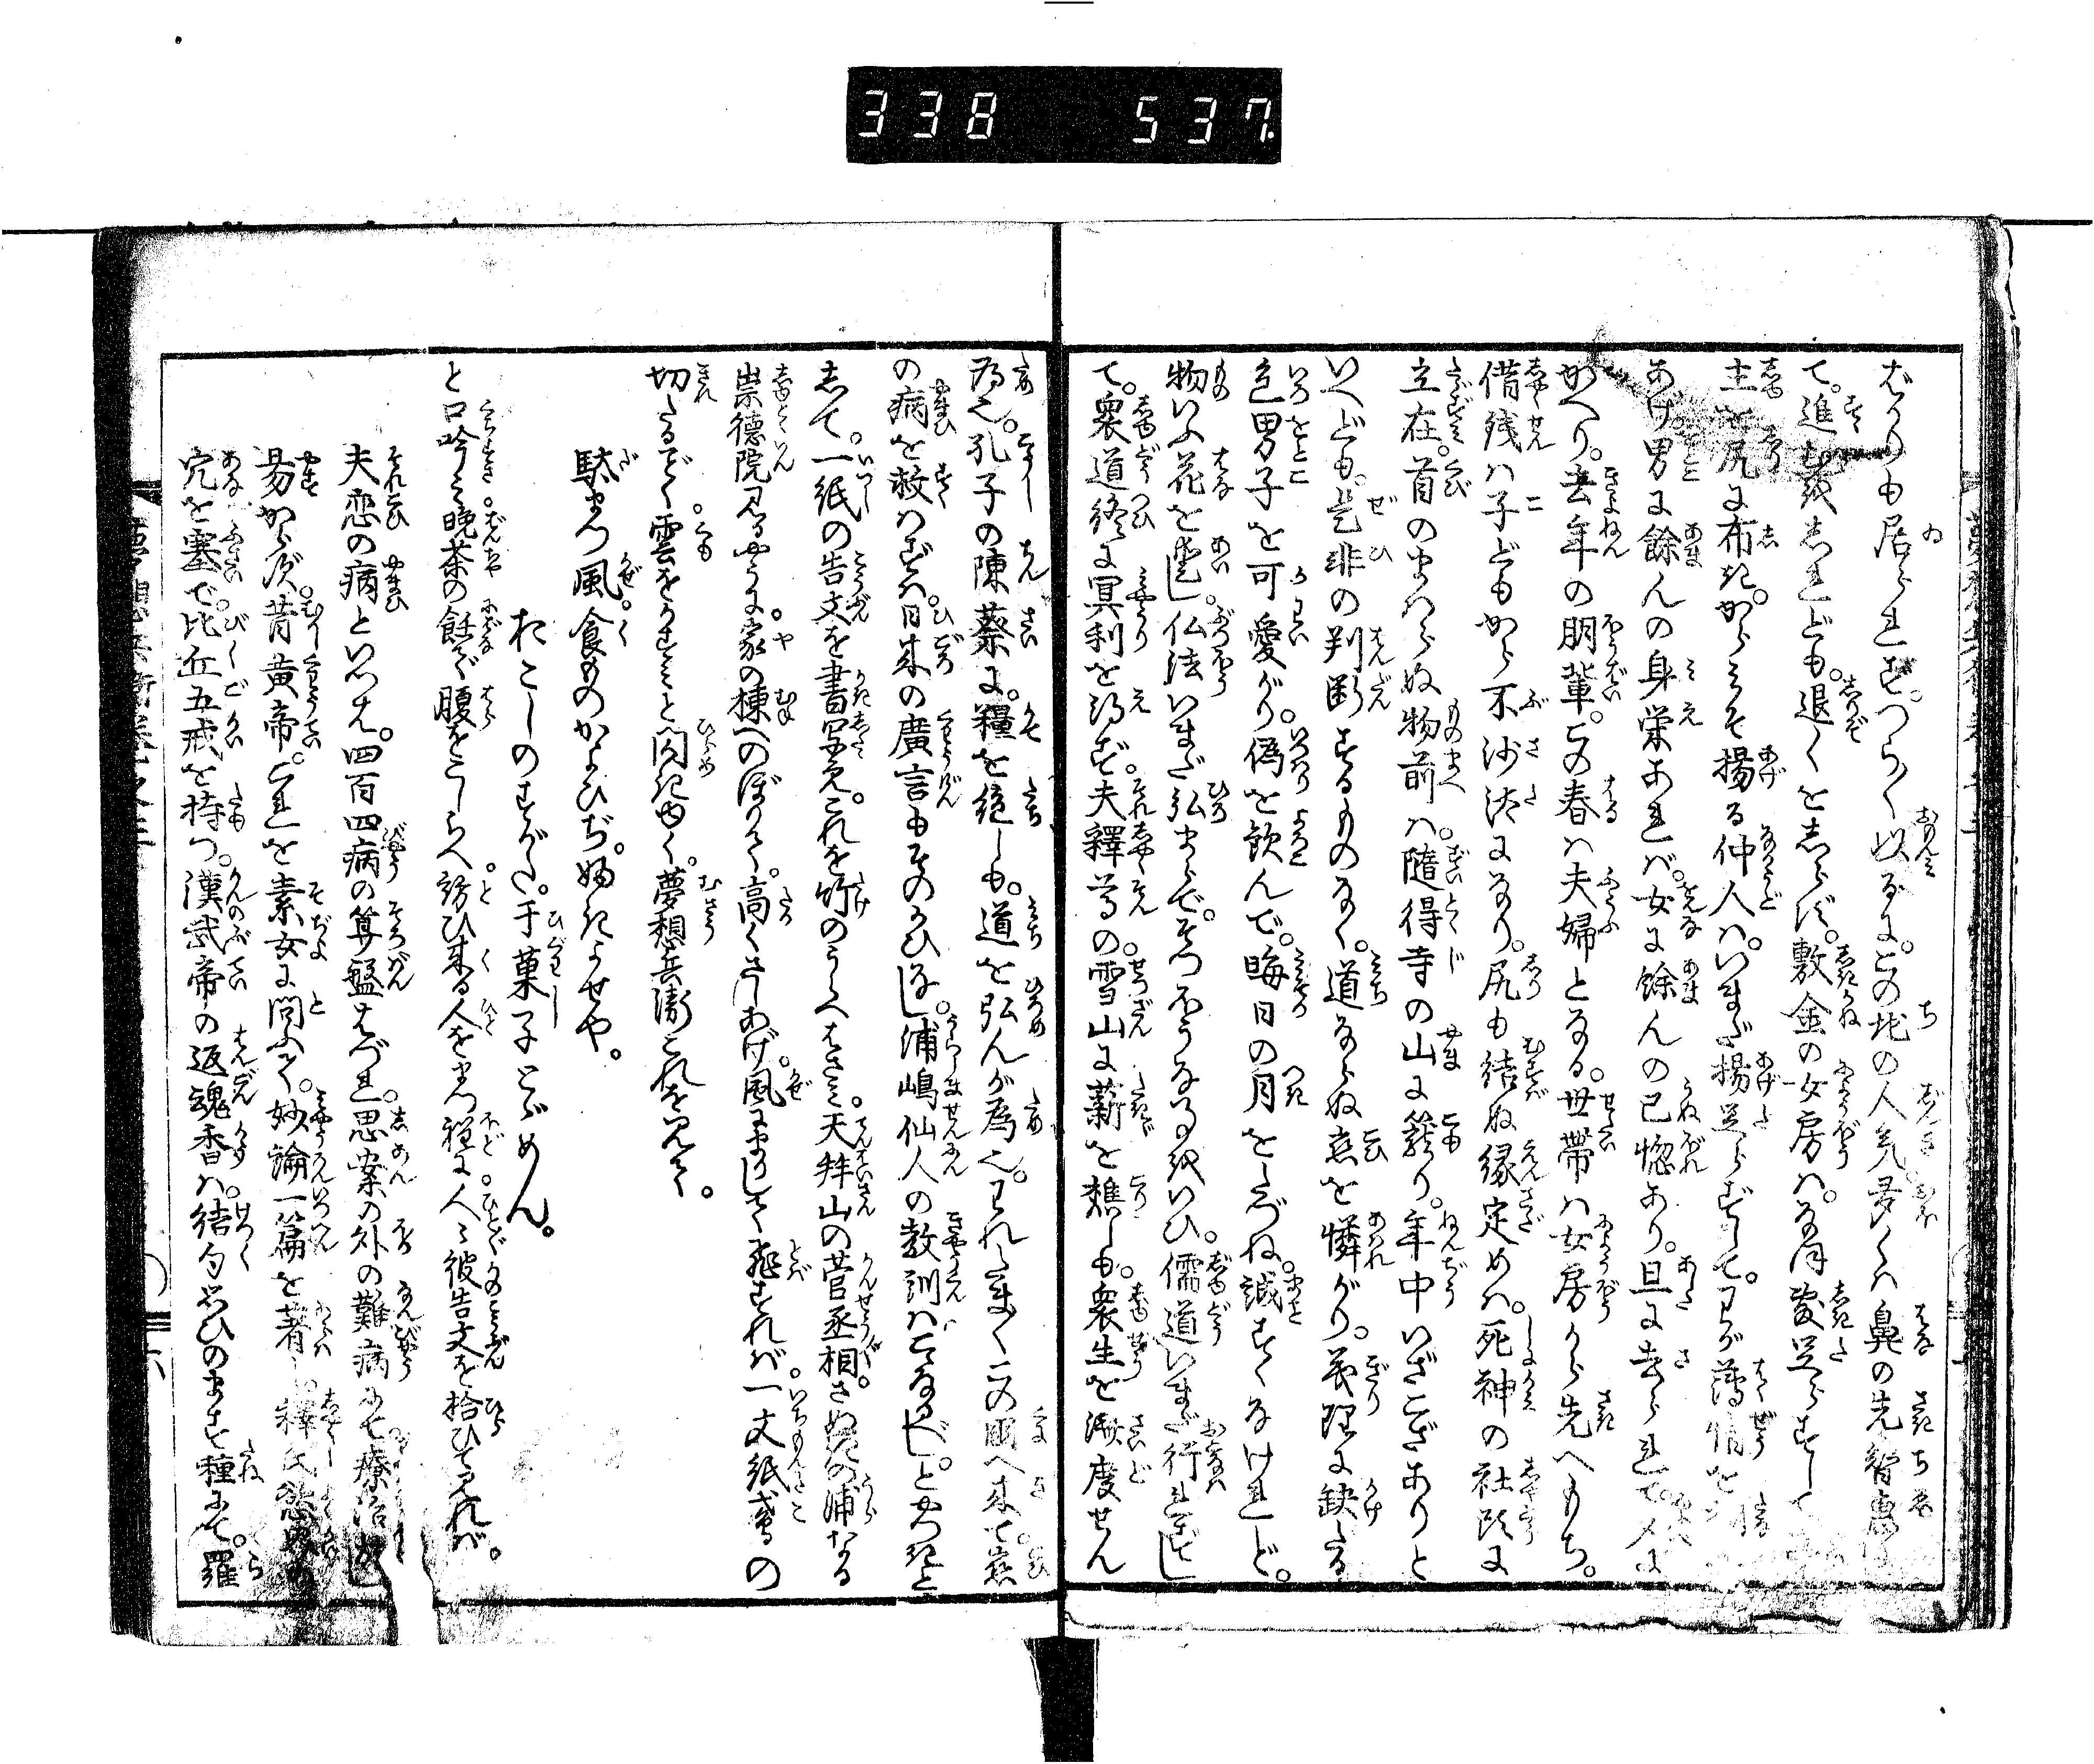 338 537
ばかりも居られず。つら〳〵以みるに。この地の人気多くは鼻の先智恵に
て。進むを志れども。退くを志らず。敷金の女房は。なほ發足らずして
主を尻に布き。からうそ揚る仲人は。いまだ揚足らずして。わが薄情を
あげ。男に餘んの身栄あれば。女に餘んの己惚あり。旦に去られて夕に
かへり。去年の朋輩。この春は夫婦となる。世帯は女房から先へもち。
借銭は子どもから不沙汰になり。尻も結ぬ縁定めは。死神の社頭に
立在。首のまはらぬ物前は。隨得寺の山に籠り。年中いざこざありと
いへども。是非の判断するものなく。道ならぬ恋を憐がり。義理に缺たる
色男子を可愛がり。偽を飲んで。晦日の月をたづね。誠すくなけれど。
物いふ花を愛し。仏法いまだ弘まらで。そつぽうなるをいひ。儒道いまだ行れずし
て。衆道終に冥利を得ず。夫釋尊の雪山に薪を樵しも。衆生を済度せん
為也。孔子の陳蔡に。糧を絶しも。道を弘んが為也。われたま〳〵この國へ来て。恋
の病を救はずは。日来の廣言もそのかひなし。浦嶋仙人の教訓はこゝなるべしと
志て。一紙の告文を書写し。これを竹のうらへはさみ。天拜山の菅丞相。さぬきの浦なる
崇徳院見るやうに。家の棟へのぼりて。高くさしあげ。風にまかして飛すれば。一文紙鳶の
切たるごとく雲をかすみと閃きゆく。夢想兵衛これを見て。
駄まつ風食ものかよひぢ。婦きよせや。
おこしのすがた。干菓子とゞめん。
と口吟み晩茶の飲で腹をこしらへ訪ひ来る人をまつ程に人〻彼告文を拾ひて見れば。
夫恋の病といつぱ。四百四病の算盤をはづれ。思案の外の難病にて療治
易からず。昔黄帝。これを素女に問ふて。妙論一篇を著し釋氏
穴を塞で比丘五戒を持つ。漢武帝の返魂香は。結句思ひのます種にて。羅